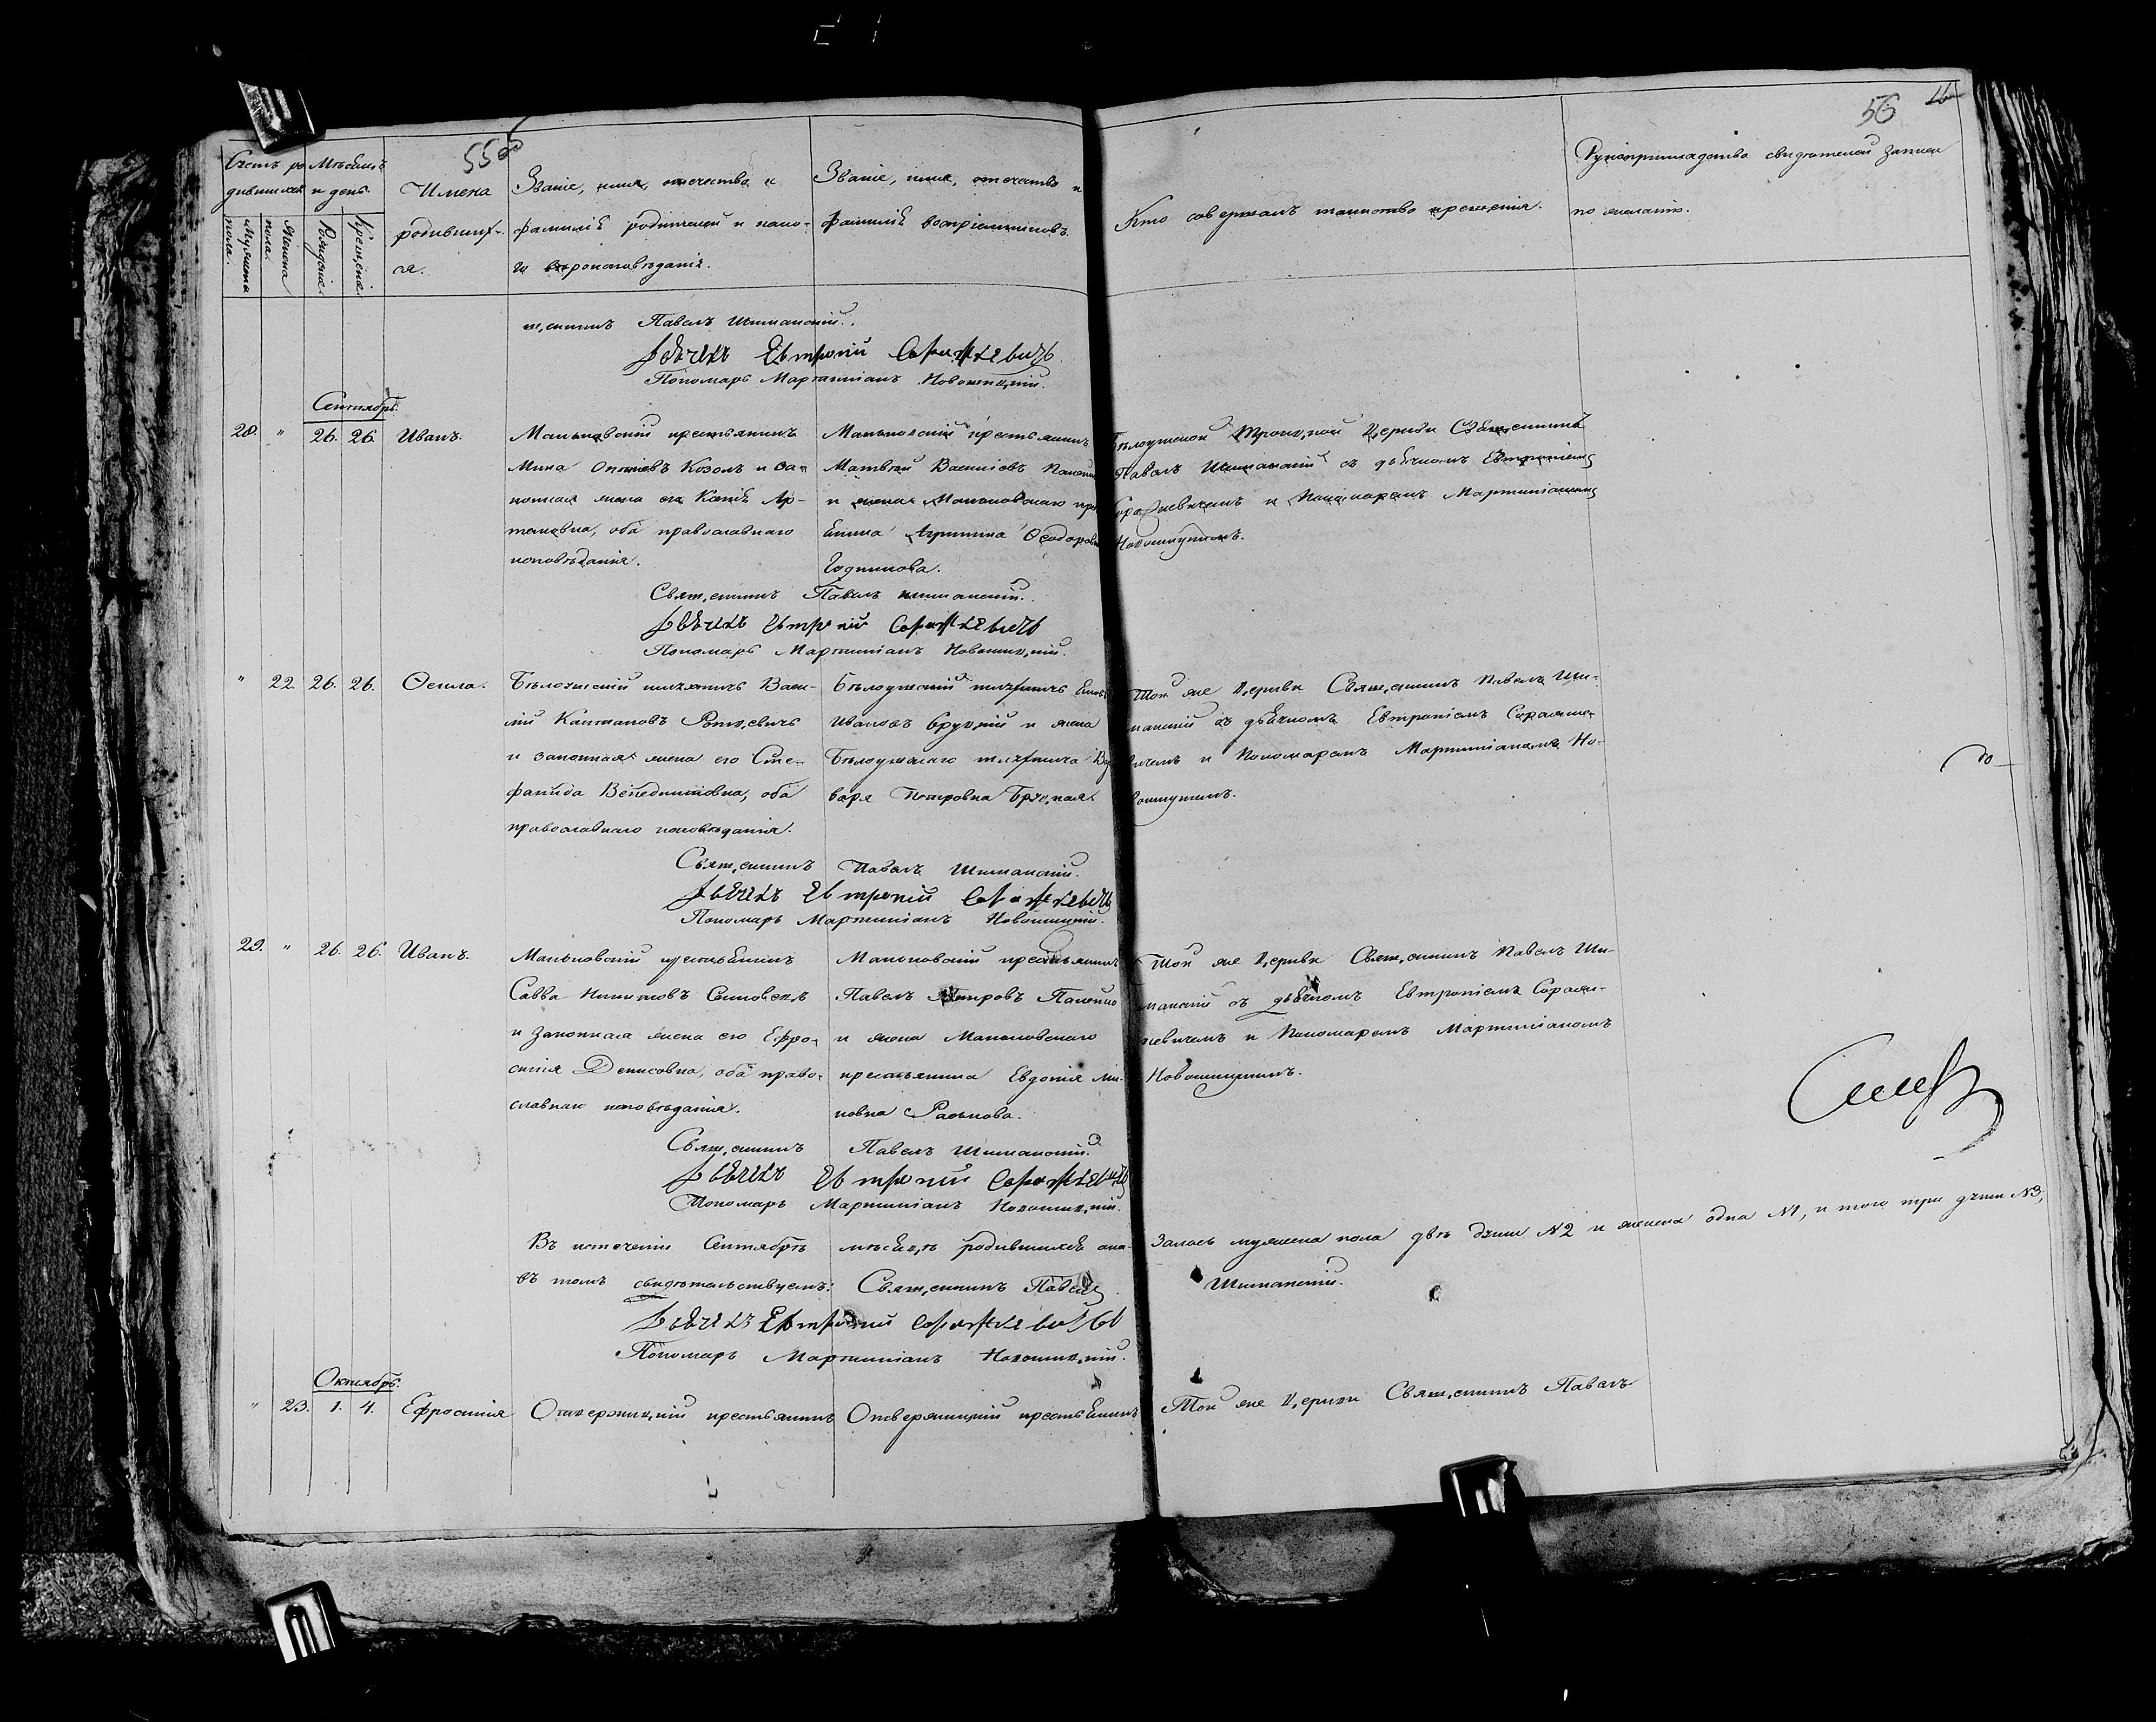 55об
56
Счетъ ро-
дившихся
Мужеска
пола.
Женска
пола.
Мѣсяцъ
и день
Рожденія.
Крещенія.
Имена
родивших-
ся.
Званіе, имя, отечество и
фамилія родителей и како-
го вѣроисповѣданія.
Званіе, имя, отечество и
фамилія воспріемниковъ.
Кто совершалъ таинство крещенія.
Рукоприкладство свидѣтелей записи
по желанію.
щенникъ Павелъ Шиманскій.
Дьячекъ Евтропій
Пономарь Мартиніанъ Новошицкій.
Сентябрь.
28. " 26. 26. Иванъ.
Маньковскій крестьянинъ
Мина Козолъ и за-
конная жена его Ар-
темовна, оба православнаго
исповѣданія.
Маньковскій крестьянинъ
Матвѣй Васильевъ
и жена Маньковскаго кре-
Ѳеодоровна
Бѣлоушской Троицкой Церкви Священникъ
Павелъ Шиманскій съ дьячкомъ Евтропіемъ
и Пономаремъ Мартиніаномъ
Новошицкимъ.
Свящ,енникъ Павелъ Шиманскій.
Дьячекъ Евтропій
Пономарь Мартиніанъ Новошицкій.
" 22. 26. 26. Ѳекла.
Бѣлоушскій шляхтичъ Васи-
лій
и законная жена его Сте-
фанида Венедиктовна, оба
православнаго исповѣданія.
Бѣлоушскій шляхтичъ
Ивановъ Бруцкій и жена
Бѣлоушскаго шляхтича Вар-
вара Петровна Бруцкая.
Той же Церкви Священникъ Павелъ Ши-
манскій съ дьячкомъ Евтропіемъ
и Пономаремъ Мартиніаномъ Но-
вошицкимъ.
Свящ,енникъ Павелъ Шиманскій.
Дьячекъ Евтропій
Пономарь Мартиніанъ Новошицкій.
29. " 26. 26. Иванъ.
Маньковскій крестьянинъ
Савва
и законная жена его Ефро-
синія Денисовна, оба право-
славнаго исповѣданія.
Маньковскій крестьянинъ
Павелъ Петровъ
и жена Маньковскаго
крестьянина Евдокія
Той же Церкви Священникъ Павелъ Ши-
манскій съ дьячкомъ Евтропіемъ
и Пономаремъ Мартиніаномъ
Новошицкимъ.
Свящ,енникъ Павелъ Шиманскій.
Дьячекъ Евтропій
Пономарь Мартиніанъ Новошицкій.
Въ истеченіи Сентября мѣсяца родившихся ока-
залось мужеска пола двѣ души №2 и женска одна №1, итого три души №3,
въ томъ свидѣтельствуемъ: Священникъ Павелъ
Шиманскій.
Дьячекъ Евтропій
Пономарь Мартиніанъ Новошицкій.
Октябрь.
" 23. 1. 4. Ефросинія
Отвержицкій крестьянинъ
Отвержицкій крестьянинъ
Той же Церкви Священникъ Павелъ